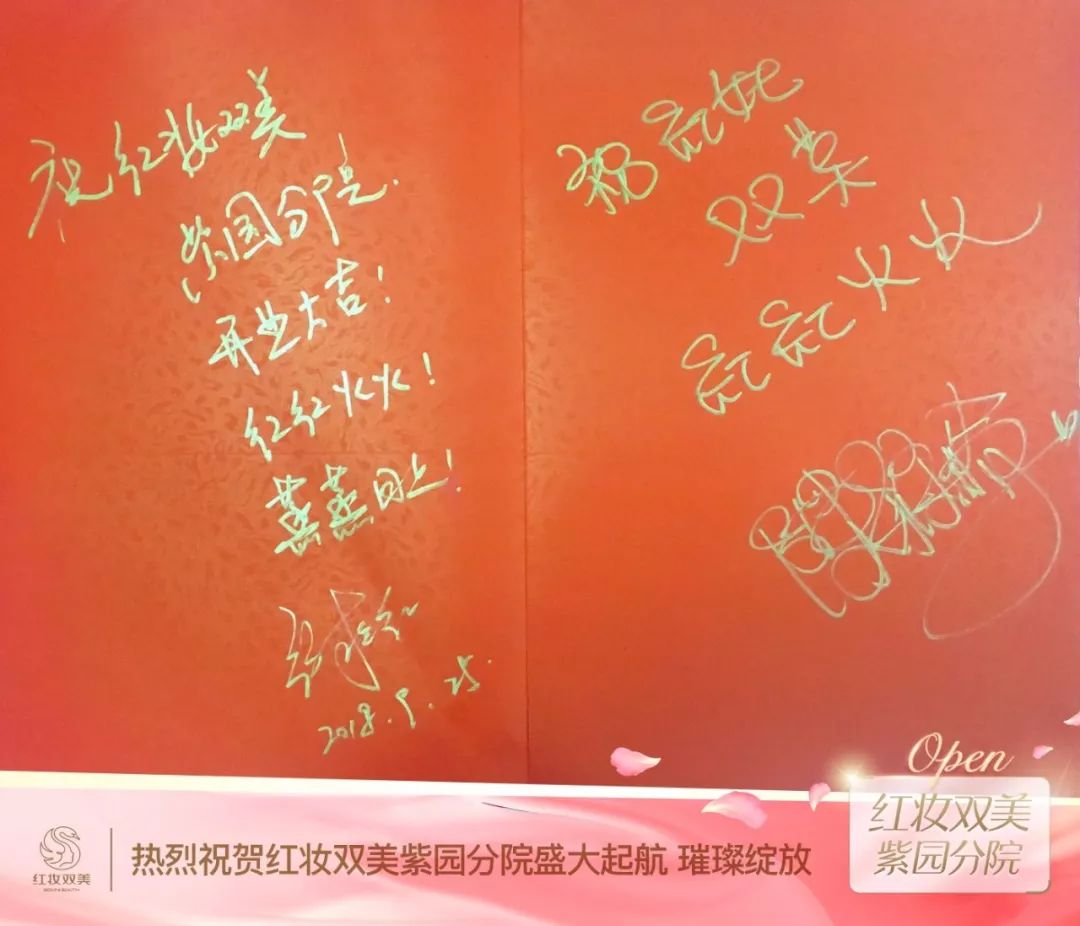 祝红妆双美
紫园分院
开业大吉!
红红火火!
蒸蒸日上!
2018.9.25.
祝红妆
双美
红红火火
Open
红妆双美
紫园分院
红妆双美
热烈祝贺红妆双美紫园分院盛大起航 璀璨绽放